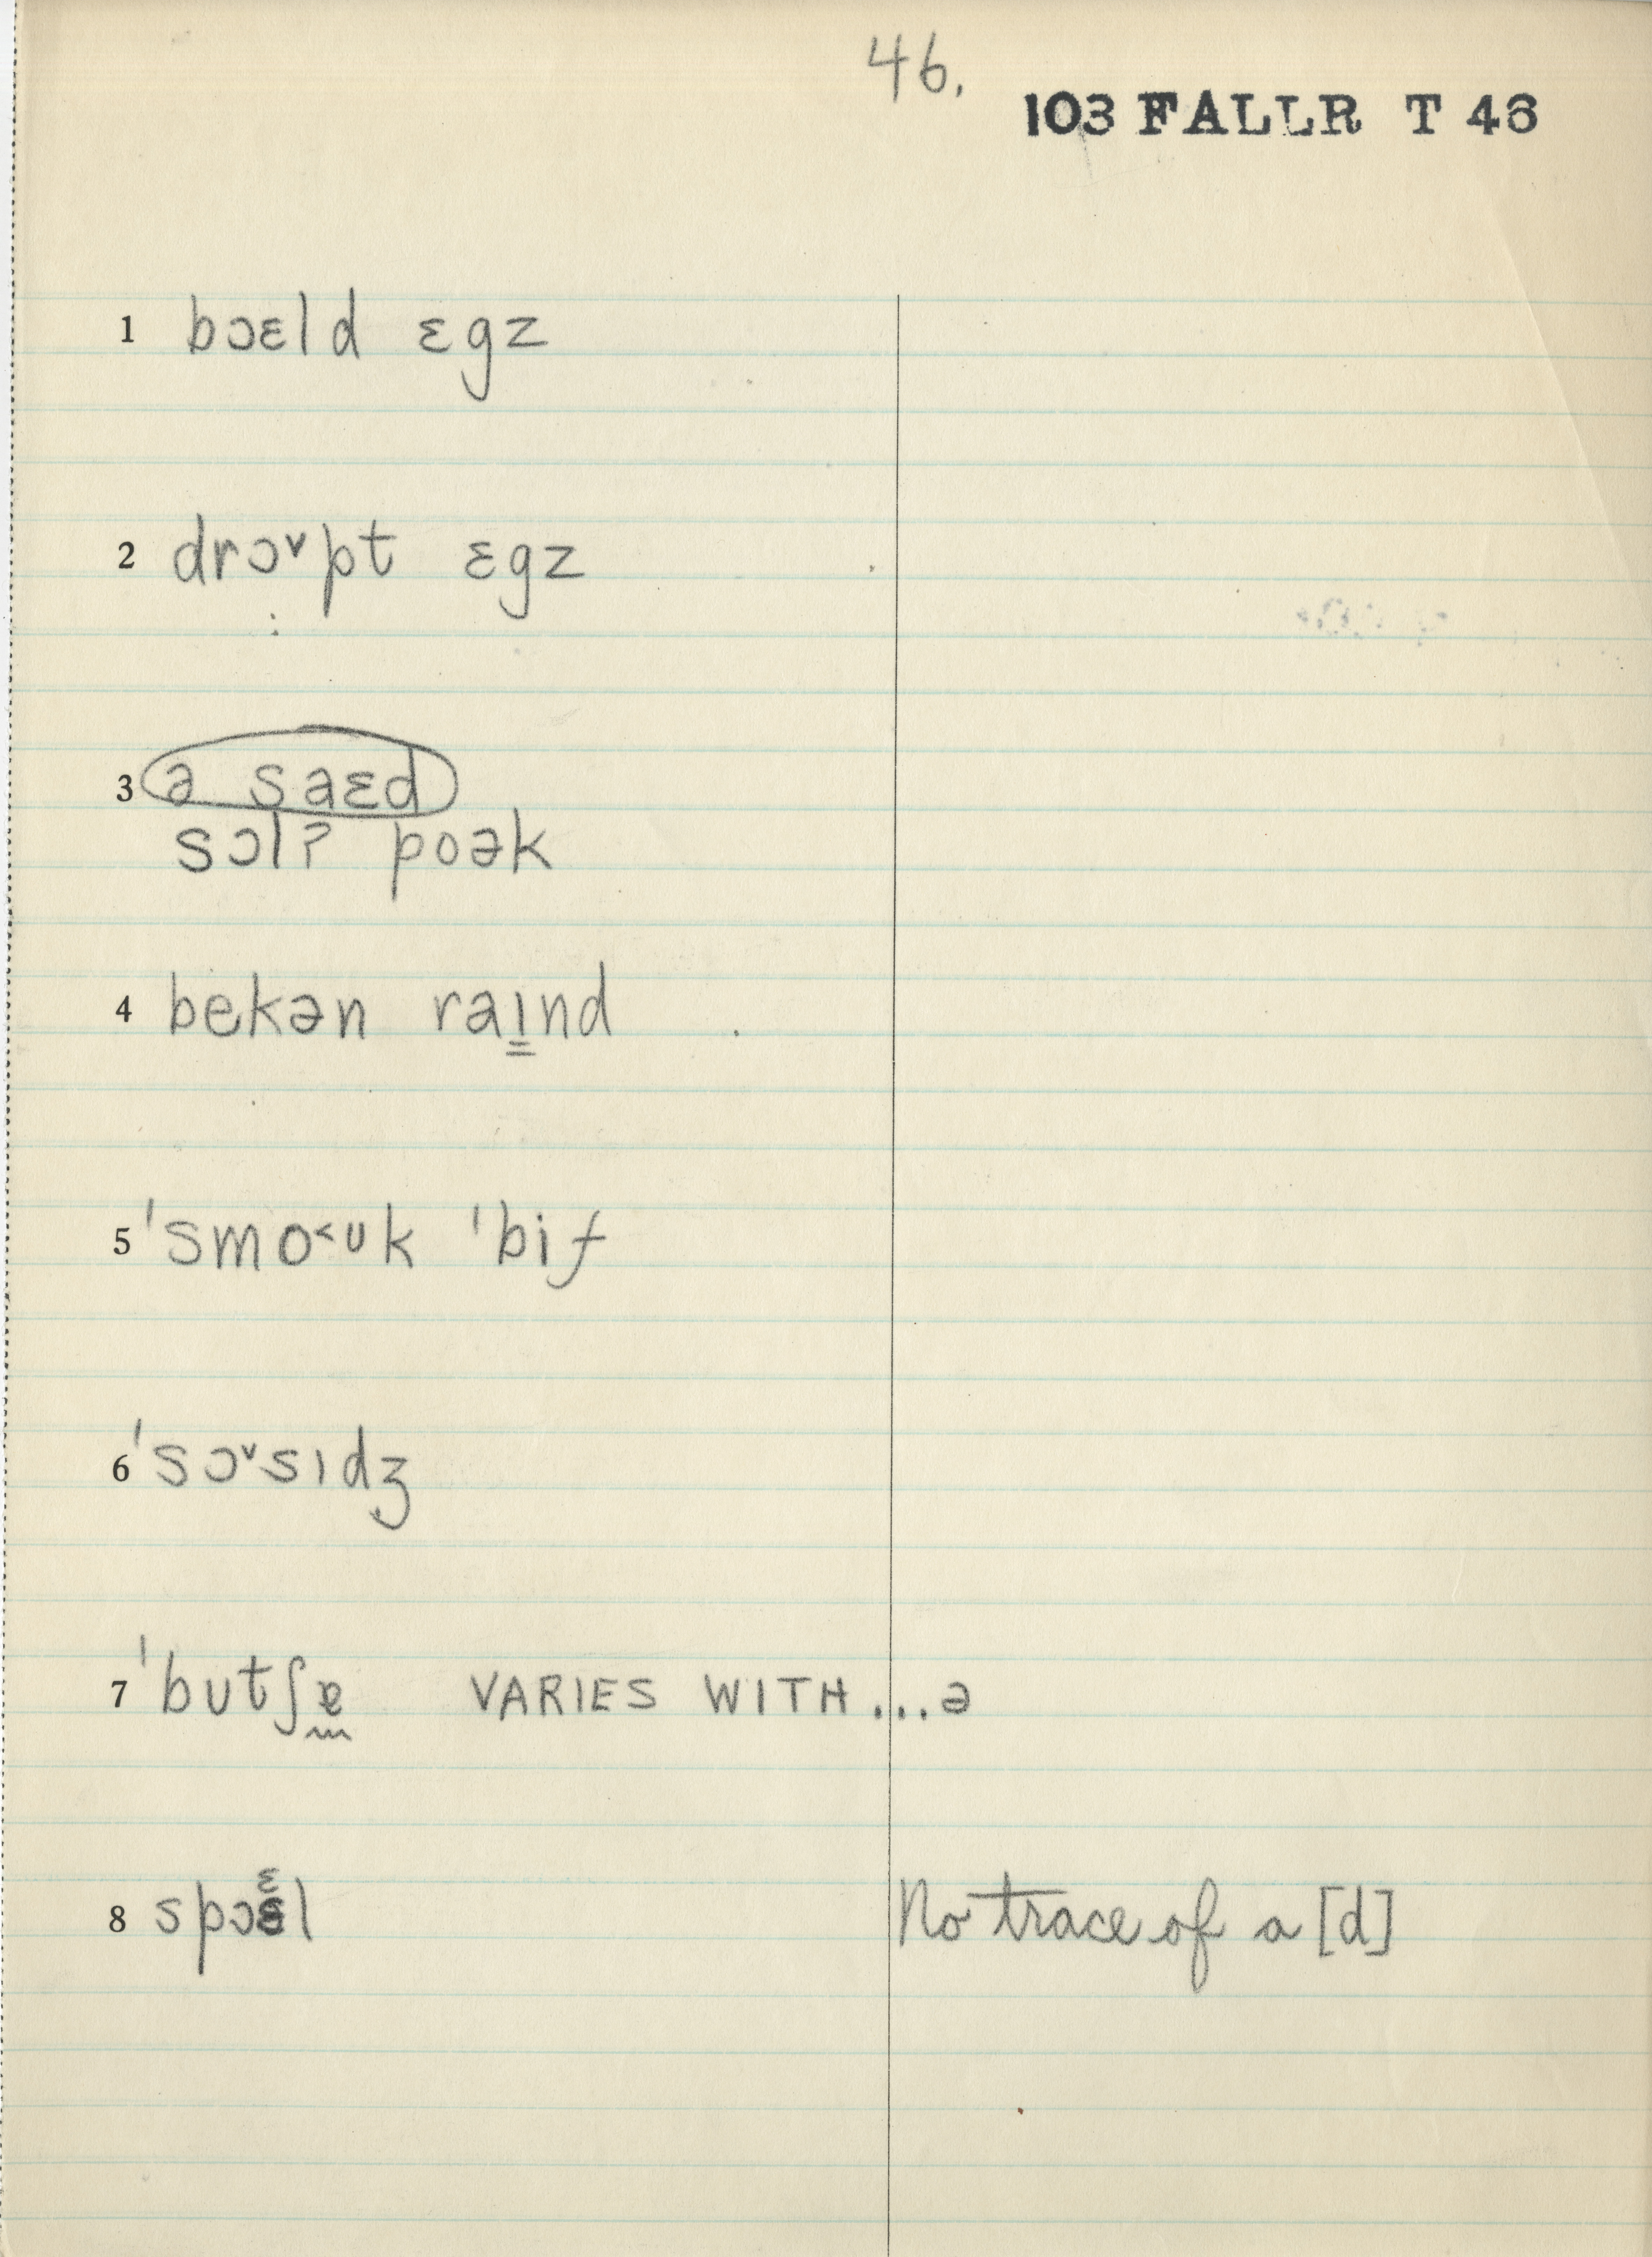 46.
103 FALLR T 46
1 bɔɛld ɛgz
2 drɔ˅pt ɛgz
3 ə saɛd
sɔlʔ poək
4 bekən raɪ̳nd
5 ˈsmo˂ᴜk ˈbif
6 ˈsɔ˅sɪdʒ
7 ˈbutʃɐ̰ VARIES WITH...ə
8 spɔɛl No trace of a [d]